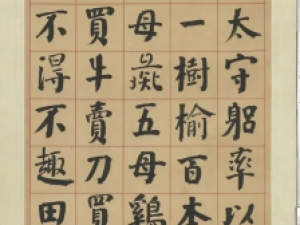 太守躳率以
一樹榆百本
母彘五母鷄
買牛賣刀買
不得不趣田